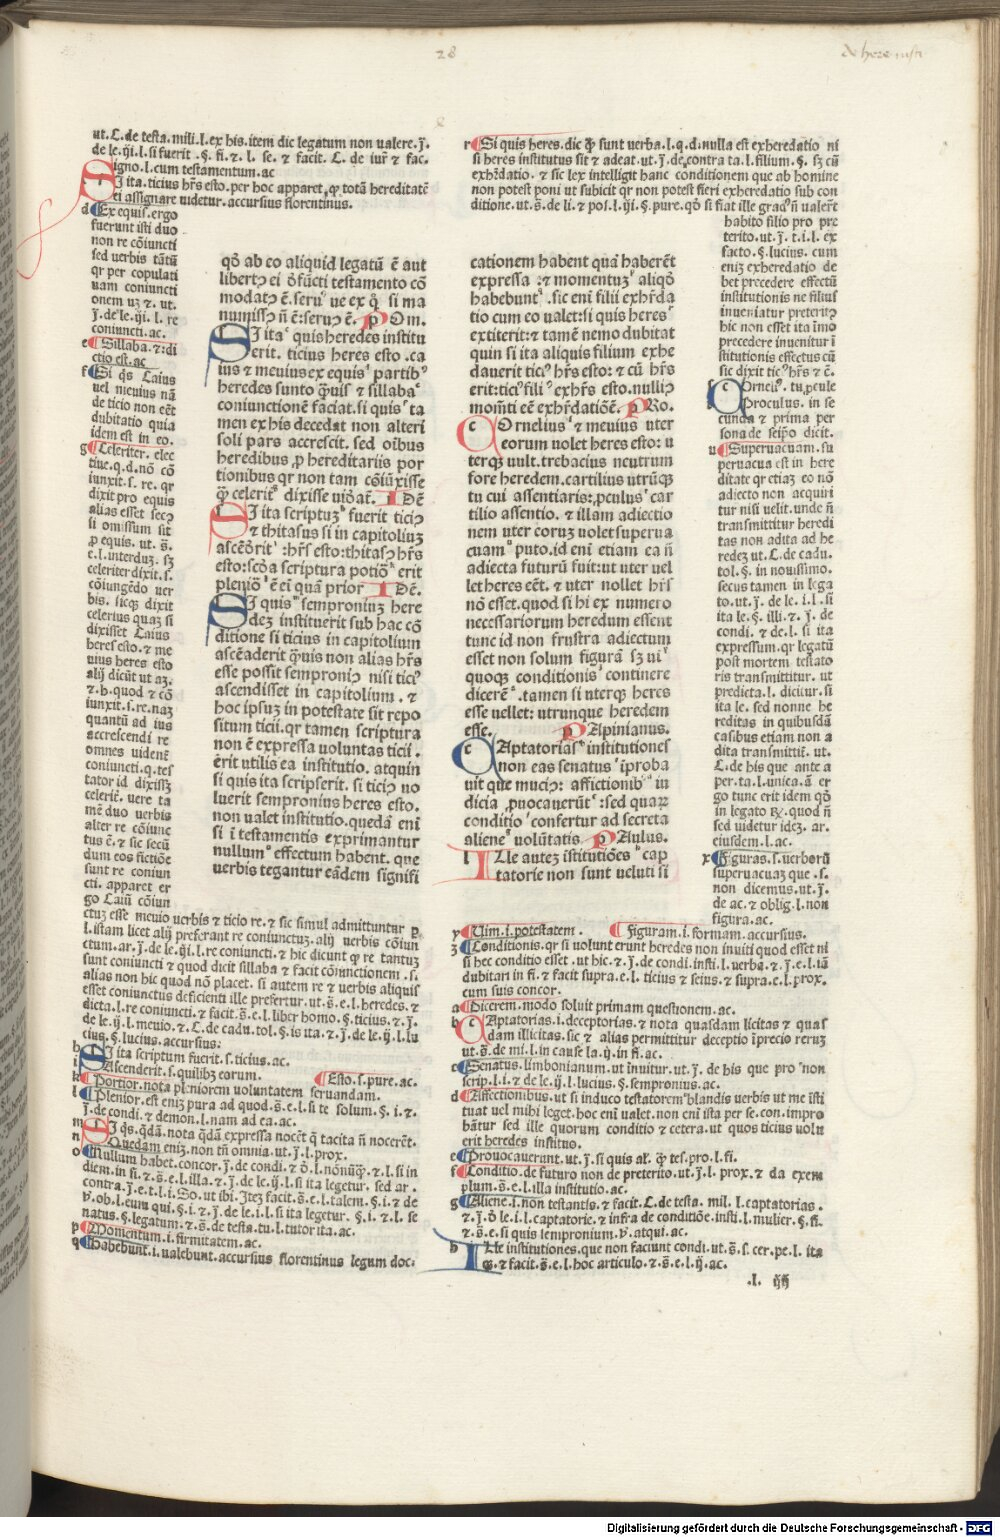 28
de here insti
ut. C. de testa. mili. l. ex his. item dic legatum non valere. j̄.
de le. ij. l. si fuerit. §. fi. ⁊ l. se. ⁊ facit. C. de iur̄ ⁊ fac.
igno. l. cum testamentum. ac
SI ita. ticius hr̄s esto. per hoc apparet, ꝙ totā hereditatē
ei assignare uidetur. accursius florentinus.
d Ex equis. ergo
fuerunt isti duo
non re cōiuncti
sed uerbis tātū
qr per copulati
uam coniuncti
onem uʒ ⁊. ut.
j̄. de le. ij. l. re
coniuncti. ac.
e Sillaba. ⁊: di
ctio est. ac
f Si q̄s Caius
uel meuius nā
de ticio non eēt
dubitatio quia
idem est in eo.
g Celeriter. elec
tiue. q. d. nō cō
iunxit. s. re. qr
dixit pro equis
alias esset secꝰ
si omissum sit
ꝑ equis. ut. s̄.
e. l. interduʒ. sʒ
celeriter dixit. s.
cōiungēdo uer
bis. sicqʒ dixit
celerius quaʒ si
dixisset Caius
heres esto. ⁊ me
uius heres esto
alij dicūt ut aʒ.
⁊. h. quod ⁊ cō
iunxit. s. re. naʒ
quantū ad ius
accrescendi re
omnes uidenē
coniuncti. q. tes
tator id dixissʒ
celerit̄. vere ta
mē duo uerbis
alter re cōiunc
tus ē. ⁊ sic secū
dum eos fictiōe
sunt re coniun
cti. apparet er
go Caiū cōiun
ctuʒ esse meuio uerbis ⁊ ticio re. ⁊ sic simul admittuntur ꝑ
l. istam licet alij preferant re coniunctuʒ. alij uerbis cōiun
ctum. ar. j̄. de le. ij. l. re coniuncti. ⁊ hic dicunt ꝙ re tantuʒ
sunt coniuncti ⁊ quod dicit sillaba ⁊ facit cōiunctionem. s.
alias non hic quod nō placet. si autem re ⁊ uerbis aliquis
esset coniunctus deficienti ille prefertur. ut. s̄. e. l. heredes. ⁊
dicta. l. re coniuncti. ⁊ facit. s̄. e. l. liber homo. §. ticius. ⁊. j̄.
de le. ij. l. meuio. ⁊. C. de cadu. tol. §. is ita. ⁊. j̄. de le. ij. l. lu
cius. §. lucius. accursius:
h SI ita scriptum fuerit. s. ticius. ac.
i Ascenderit. s. quilibʒ eorum. Esto. s. pure. ac.
k Portior. nota pleniorem voluntatem seruandam.
l Plenior. est eniʒ pura ad quod. s̄. e. l. si te solum. §. i. ⁊.
j̄. de condi. ⁊ demon. l. nam ad ea. ac.
m SI q̄s. q̄dā. nota q̄dā expressa nocēt ꝙ tacita n̄ nocerēt.
n Quedam eniʒ. non tn̄ omnia. ut. j̄. l. prox.
o Nullum habet. concor. j̄. de condi. ⁊ ō. l. nōnūqꝫ. ⁊. l. si in
diem. in fi. ⁊. s̄. e. l. illa. ⁊. j̄. de le. ij. l. si ita legetur. sed ar.
contra. j̄. e. t. l. i. So. ut ibi. Iteʒ facit. s̄. e. l. talem. §. i. ⁊ de
v. ob. l. eum qui. §. i. ⁊. j̄. de le. i. l. si ita legetur. §. i. ⁊. l. se
natus. §. legatum. ⁊. s̄. de testa. tu. l. tutor ita. ac.
p Momentum. i. firmitatem. ac.
q Habebunt. i. ualebunt. accursius florentinus legum doc.
qd̄ ab eo aliquid legatū ē aut
libertꝫ ei d̄fūcti testamento cō
modatꝫ ē. seruꝰ ue ex q̄ si ma
numissꝰ n̄ ē: seruꝰ ē. pOm.
SI ita quis heredes institu
erit. ticius heres esto. ca
ius ⁊ meuius ex equis partibꝰ
heredes sunto q̄uis ⁊ sillaba
coniunctionē faciat. si quis ta
men ex his decedat non alteri
soli pars accrescit. sed oībus
heredibus ꝓ hereditariis por
tionibus qr non tam cōiūxisse
q̄ celeriꝰ dixisse uiōat̄. IDē
SI ita scriptuʒ fuerit ticiꝰ
⁊ thitasus si in capitoliuʒ
ascēōrit: hr̄s esto: thitasꝰ hr̄s
esto: scōa scriptura potiō erit
pleniōʳ ē ei quā prior IDē.
SI quis semproniuʒ here
deʒ instituerit sub hac cō
ditione si ticius in capitolium
ascēaderit q̄uis non alias hr̄s
esse possit semproniꝰ nisi ticiꝰ
ascendisset in capitolium. ⁊
hoc ipsuʒ in potestate sit repo
situm ticii. qr tamen scriptura
non ē expressa uoluntas ticii.
erit utilis ea institutio. atquin
si quis ita scripserit. si ticiꝰ uo
luerit sempronius heres esto.
non ualet institutio. quedā enī
si ī testamentis exprimantur
nullum effectum habent. que
uerbis tegantur eādem signifi
r Si quis heres. dic ꝙ sunt verba. l. q. d. nulla est exheredatio ni
si heres institutus sit ⁊ adeat. ut. j̄. de contra ta. l. filium. §. sʒ cū
exhr̄datio. ⁊ sic lex intelligit hanc conditionem que ab homine
non potest poni ut subicit qr non potest fieri exheredatio sub con
ditione. ut. s̄. de li. ⁊ pos. l. iij. §. pure. qō si fiat ille gradꝰ n̄ ualer̄t
habito filio pro pre
terito. ut. j̄. t. i. l. ex
facto. §. lucius. cum
eniʒ exheredatio de
bet precedere effectū
institutionis ne filius
inueniatur preteritꝰ
hic non esset ita īmo
precedere inuenitur ī
stitutionis effectus cū
sic dixit ticꝰ hr̄s ⁊ ē.
s COrneliꝰ. tu, ꝓcule
t Proculus. in se
cunda ⁊ prima per
sona de seipō dicit.
u Superuacuam. su
peruacua est in here
ditate qr etiaʒ eo nō
adiecto non acquiri
tur nisi uelit. unde n̄
transmittitur heredi
tas non adita ad he
redeʒ ut. C. de cadu.
tol. §. in nouissimo.
secus tamen in lega
to. ut. j̄. de le. i. l. si
ita le. §. illi. ⁊. j̄. de
condi. ⁊ de. l. si ita
expressum. qr legatū
post mortem testato
ris transmittitur. ut
predicta. l. dicitur. si
ita le. sed nonne he
reditas in quibusdā
casibus etiam non a
dita transmittit̄. ut.
C. de his que ante a
per. ta. l. unica. ā er
go tunc erit idem qō
in legato ℞. quod n̄
sed uidetur ideʒ. ar.
eiusdem. l. ac.
x Figuras. s. uerborū
superuacuaʒ que. s.
non dicemus. ut. j̄.
de ac. ⁊ oblig. l. non
figura. ac.
y Uim. i. potestatem. Figuram. i. formam. accursius.
z Conditionis. qr si uolunt erunt heredes non inuiti quod esset ni
si hec conditio esset. ut hic. ⁊. j̄. de condi. insti. l. uerba. ⁊. j̄. e. l. iā
dubitari in fi. ⁊ facit supra. e. l. ticius ⁊ seius. ⁊ supra. e. l. prox.
cum suis concor.
a Dicerem. modo soluit primam questionem. ac.
b CAptatorias. i. deceptorias. ⁊ nota quasdam licitas ⁊ quas
dam illicitas. sic ⁊ alias permittitur deceptio ī precio rerum
ut. s̄. de mi. l. in cause la. ij. in fi. ac.
c Senatus. limbonianum. ut inuitur. ut. j̄. de his que pro non
scrip. l. i. ⁊ de le. ij. l. lucius. §. sempronius. ac.
d Affectionibus. ut si induco testatorem blandis uerbis ut me īsti
tuat uel mihi leget. hoc enī ualet. non enī ista per se. con. impro
bātur sed ille quorum conditio ⁊ cetera. ut quos ticius uolu
erit heredes instituo.
e Prouocauerunt. ut. j̄. si quis al. q̄ tes. pro. l. fi.
f Conditio. de futuro non de preterito. ut. j̄. l. prox. ⁊ da exem
plum. s̄. e. l. illa institutio. ac.
g Aliene. i. non testantis. ⁊ facit. C. de testa. mil. l. captatorias.
⁊. j̄. ō le. i. l. captatorie. ⁊ infra de conditiōe. insti. l. mulier. §. fi.
⁊. s̄. e. si quis sempronium. v. atqui. ac.
h ILle institutiones. que non faciunt condi. ut. s̄. s. cer. pe. l. ita
qʒ. ⁊ facit. s̄. e. l. hoc articulo. ⁊. s̄. e. l. ij. ac.
cationem habent quā haberēt
expressa: ⁊ momentuʒ aliqō
habebunt. sic enī filii exhr̄da
tio cum eo ualet: si quis heres
extiterit: ⁊ tamē nemo dubitat
quin si ita aliquis filium exhe
dauerit ticiꝰ hr̄s esto: ⁊ cū hr̄s
erit: ticiꝰ filiꝰ exhr̄s esto. nulliꝰ
momēti eē exhr̄datiōē. pRo.
COrnelius ⁊ meuius uter
eorum uolet heres esto: u
terqʒ uult. trebacius neutrum
fore heredem. cartilius utrūqʒ
tu cui assentiaris: ꝓculus car
tilio assentio. ⁊ illam adiectio
nem uter coruʒ uolet superua
cuam puto. id enī etiam ea n̄
adiecta futurū fuit: ut uter uel
let heres eēt. ⁊ uter nollet hr̄s
nō esset. quod si hi ex numero
necessariorum heredum essent
tunc id non frustra adiectum
esset non solum figurā sʒ ui
quoqʒ conditionis continere
dicerē. tamen si uterqʒ heres
esse uellet: utrunque heredem
esse. PApinianus.
CAptatorias institutiones
non eas senatus īproba
uit que mutuis affictionibꝰ iu
dicia ꝓuocauerūt: sed quarʒ
conditio confertur ad secreta
aliene uolūtatis PAulus.
ILle auteʒ īstitutiōes cap
tatorie non sunt ueluti si
.l. iiij
Digitalisierung gefördert durch die Deutsche Forschungsgemeinschaft - DFG